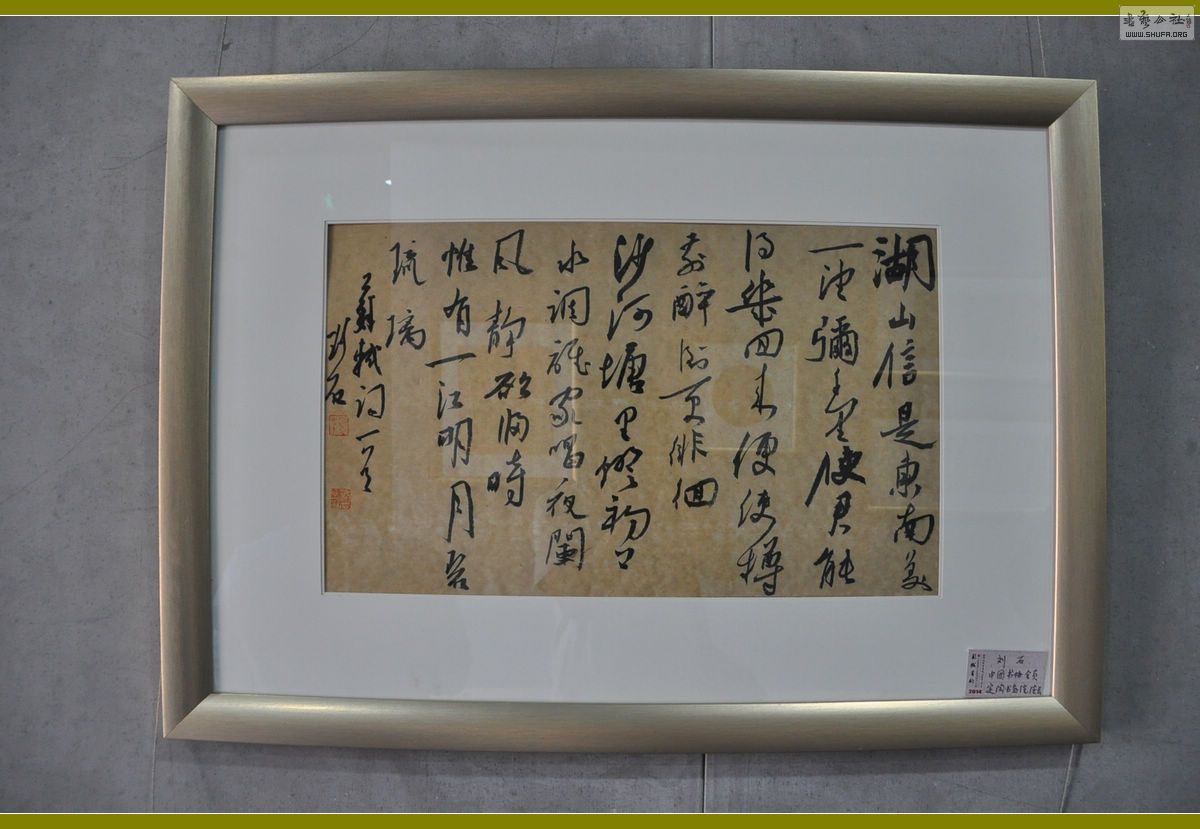 湖山信是東南美
一望彌千里使君能
得幾回来便使樽
前醉倒更徘徊
沙河塘里燈初上
水調誰家唱夜闌
風静欲歸時
惟有一江明月碧
琉璃
蘇軾词一首
刘石
刘 石
中国书协会员
定陶书画院院
2014
书艺公社
WWW.SHUFA.ORG